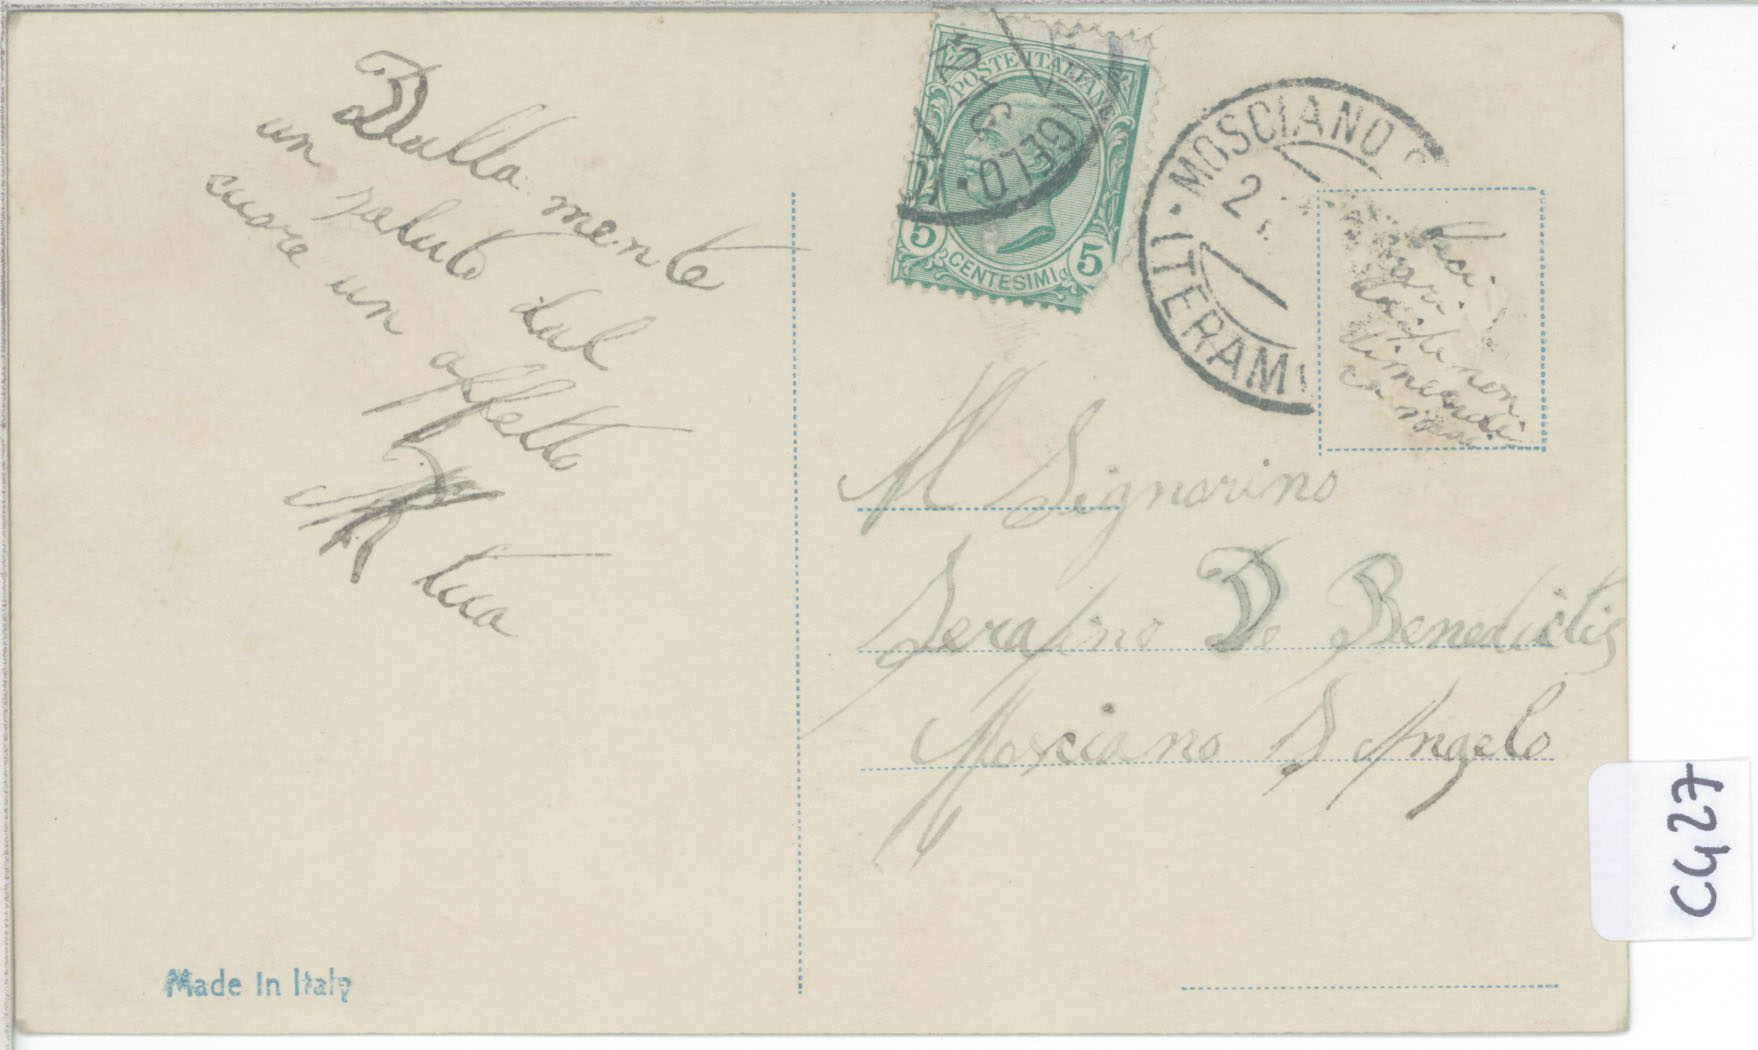 Dalla mente
un saluto dal
cuore un affetto
tua
POSTE ITALIANE
5 CENTESIMI 5
GELO
MOSCIANO S
2
(TERAM
baci
non
Al Signorino
Serafino De Benedictis
Mosciano S Angelo
Made in Italy
C427